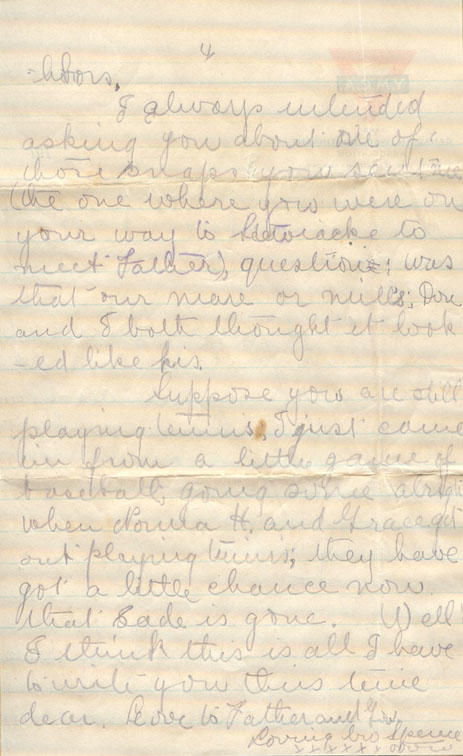 4
-bors.
I always intended
asking you about one of
those snaps you sent me
(the one where you were on
your way to to
meet Father), question; was
that our mare or Mill's; Don
and I both thought it look
-ed like his.
Suppose you are still
playing tennis, I just came
in from a little game of
baseball, going some alright
when Norma H. and Grace get
out playing tennis; they have
got a little chance now
that Sade is gone. Well
I think this is all I have
to write you this time
dear. Love to Father and
Loving bro Spence
x x x x x x